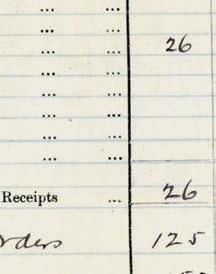 ... ...
... ... 26
... ...
... ...
... ...
... ...
... ...
... ...
Receipts ... 26
rders 125